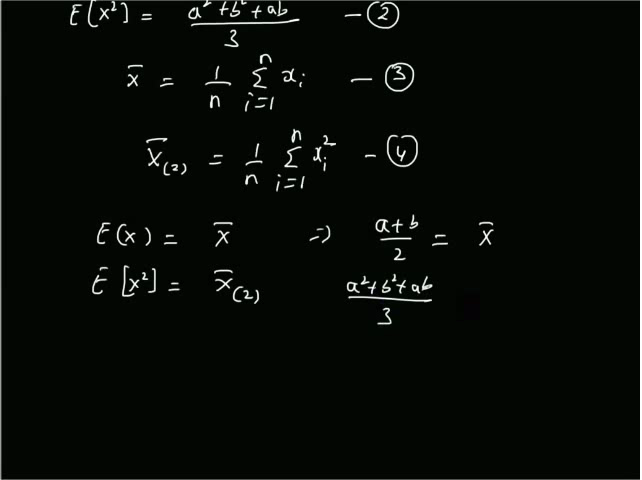 E[x²] = a²+b²+ab / 3 — ②
x̄ = 1/n ∑_{i=1}^{n} x_i — ③
x̄_(2) = 1/n ∑_{i=1}^{n} x_i² — ④
E(x) = x̄ ⇒ a+b / 2 = x̄
E[x²] = x̄_(2) a²+b²+ab / 3